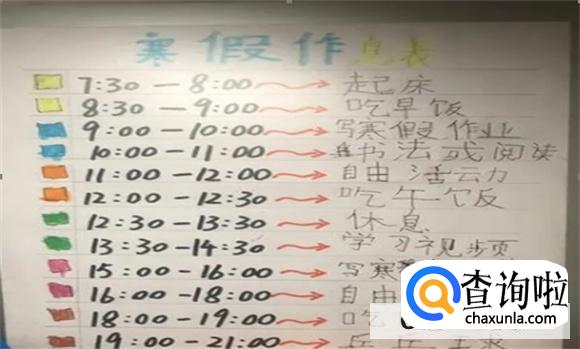 寒假作息表
7:30—8:00 起床
8:30—9:00 吃早饭
9:00—10:00 写寒假作业
10:00—11:00 书法或阅读
11:00—12:00 自由活云力
12:00—12:30 吃午饭
12:30—13:30 休息
13:30—14:30 学习视步页
15:00—16:00 写寒
16:00—18:00 自由
18:00—19:00 吃
19:00—21:00 乒乓
查询啦
chaxunla.com